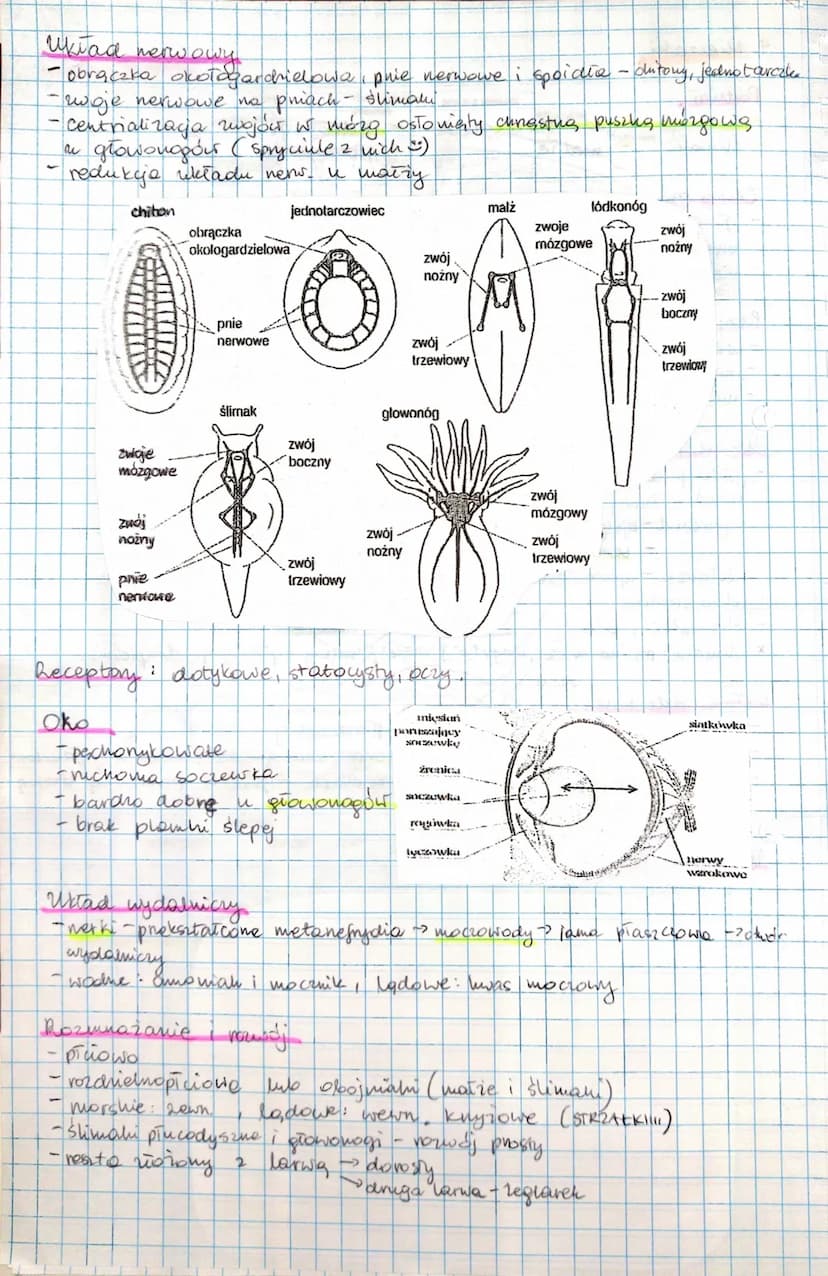 Układ nerwowy
- obrączka okołogardzielowa, pnie nerwowe i spoidła - chitony, jednotarczk.
- zwoje nerwowe na pniach - ślimaki
- centralizacja zwojów w mózg osłonięty chrzęstną puszką mózgową
u głowonogów (spryciule z nich)
- redukcja układu nerw. u małży
chiton
jednotarczowiec
małż
łódkonóg
obrączka
okologardzielowa
pnie
nerwowe
zwoje
mózgowe
zwój
nożny
zwój
trzewiowy
zwój
nożny
zwój
boczny
zwój
trzewiowy
ślimak
glowonóg
zwoje
mózgowe
zwój
nożny
pnie
nerwowe
zwój
boczny
zwój
trzewiowy
zwój
nożny
zwój
mózgowy
zwój
trzewiowy
Receptory: dotykowe, statocysty, oczy.
Oko
- pęcherzykowate
- ruchoma soczewka
- bardzo dobre u głowonogów
- brak plamki ślepej
mięsień
poruszający
soczewkę
źrenica
soczewka
rogówka
tęczówka
siatkówka
nerwy
wzrokowe
Układ wydalniczy
- nerki - przekształcone metanefrydia → moczowody → jama płaszczowa → otwór
wydalniczy
- wodne: amoniak i mocznik, lądowe: kwas moczowy
Rozmnażanie i rozwój
- płciowo
- rozdzielnopłciowe lub obojniaki (małże i ślimaki)
- morskie: zewn., lądowe: wewn. krzyżowe (STRZAŁKI!!!)
- ślimaki płucodyszne i głowonogi - rozwój prosty
- reszta złożony z larwą → dorosły
→ druga larwa - żeglarek